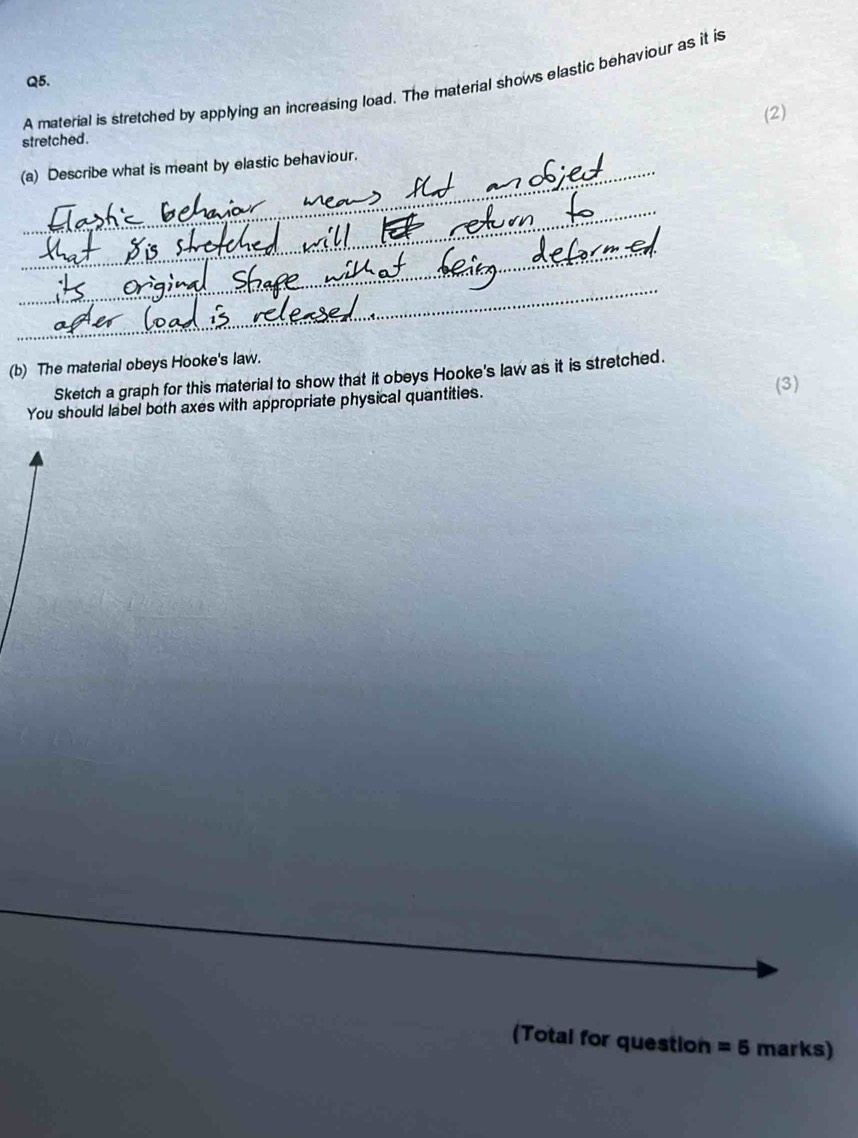 Q5.
A material is stretched by applying an increasing load. The material shows elastic behaviour as it is
stretched.
(2)
(a) Describe what is meant by elastic behaviour.
Elastic behavior means that an object
that is stretched will return to
its original shape without being deformed
after load is released.
(b) The material obeys Hooke's law.
Sketch a graph for this material to show that it obeys Hooke's law as it is stretched.
You should label both axes with appropriate physical quantities.
(3)
(Total for question = 5 marks)